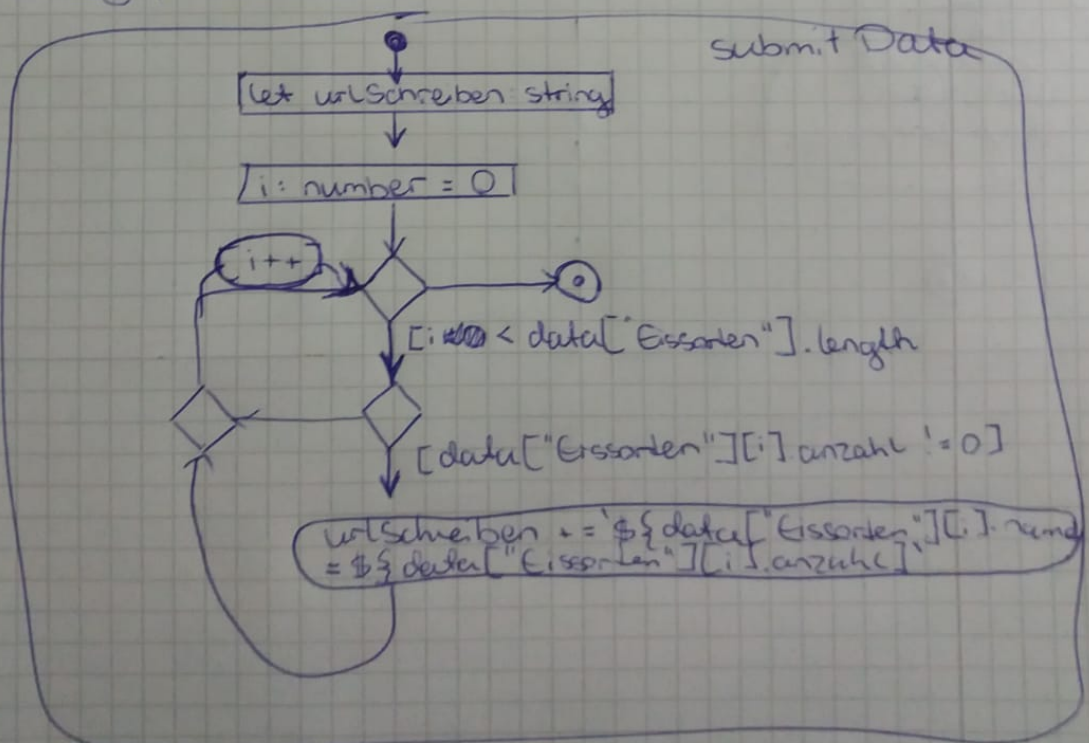 submit Data
let urlSchreiben: string
i: number = 0
i++
[i < data["Eissorten"].length
[data["Eissorten"][i].anzahl != 0]
urlSchreiben += `${data["Eissorten"][i].name
= ${data["Eissorten"][i].anzahl}`